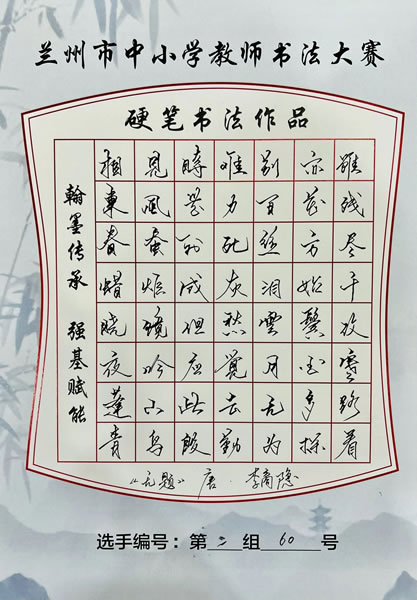 兰州市中小学教师书法大赛
硬笔书法作品
翰墨传承 强基赋能
相見時难别亦难
東風无力百花残
春蚕到死丝方尽
蜡炬成灰泪始干
晓镜但愁雲鬓改
夜吟应觉月光寒
蓬山此去无多路
青鸟殷勤为探看
《无题》唐·李商隐
选手编号：第二组60号